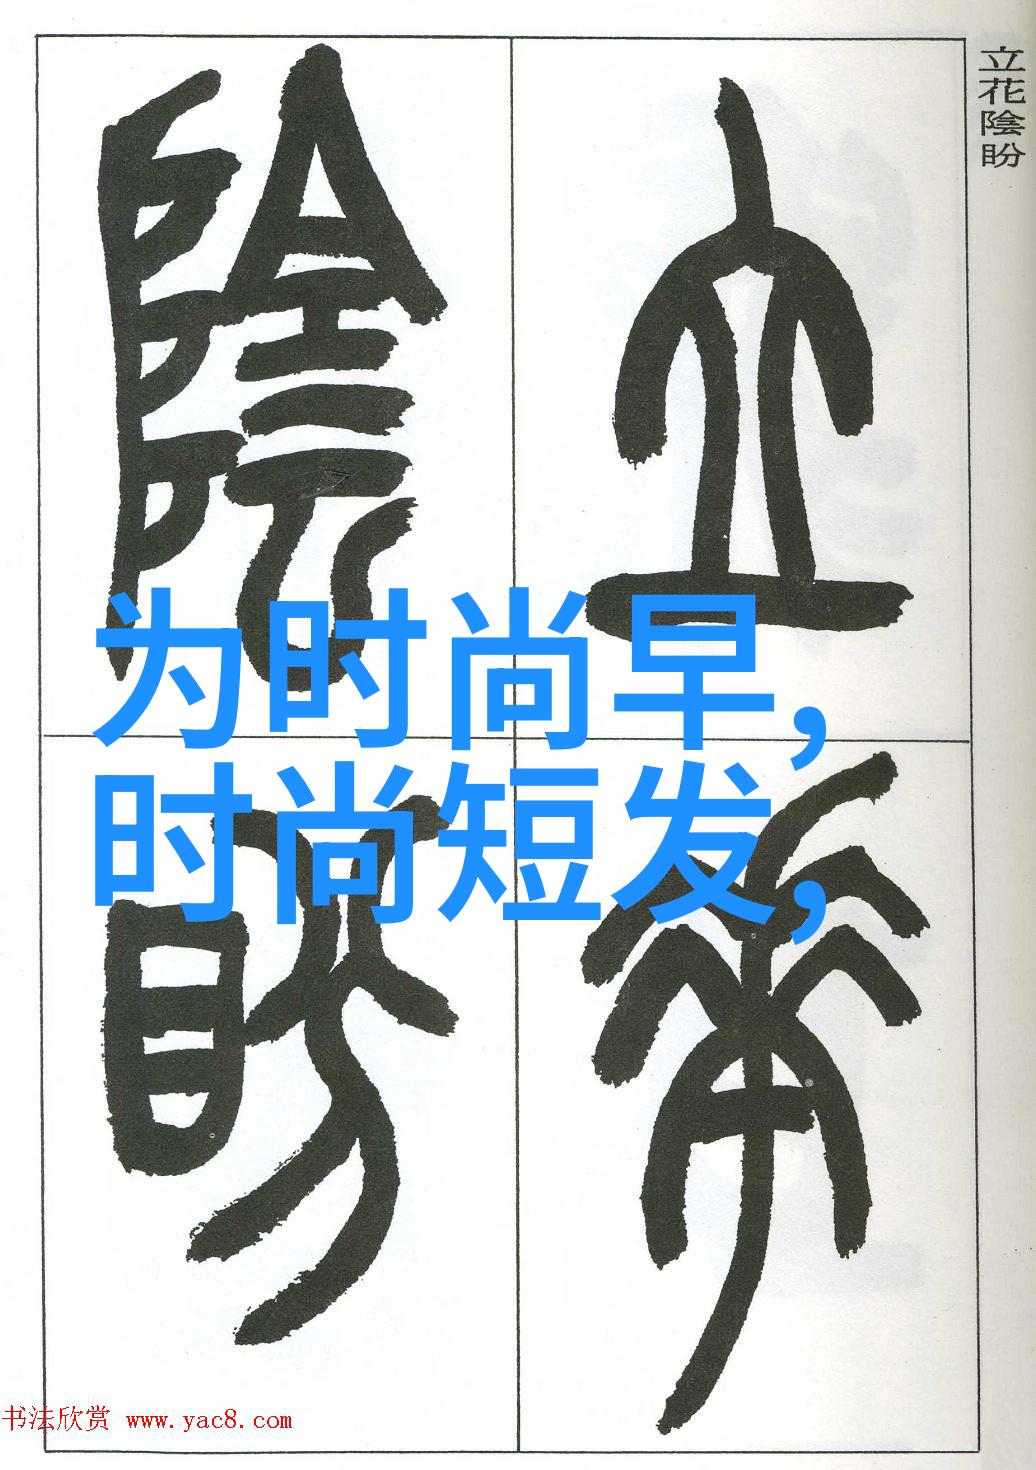 立花陰盼
立花
陰盼
为时尚早,
时尚短发,
书法欣赏 www.yac8.com